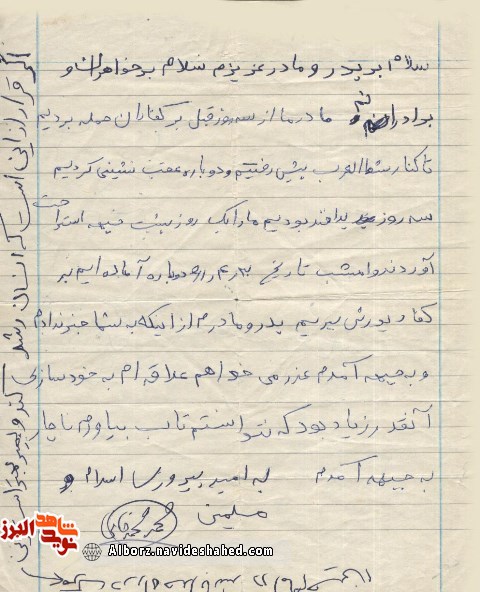 سلام بر پدر و مادر عزیزم سلام بر خواهران و
برادرانم مادر ما از سه روز قبل بر کفاران حمله بردیم
تا کنار شط العرب پیش رفتیم و دوباره عقب نشینی کردیم
سه روز پدافند بودیم ما را یک روز پشت استراحت
آوردند و امشب تاریخ دوباره آماده ایم بر
کفار یورش ببریم پدر و مادرم از اینکه به شما خبر ندادم
و به جبهه آمدم عذر می خواهم علاقه ام به خودسازی
آنقدر زیاد بود که نتوانستم تاب بیاورم ناچار
به جبهه آمدم به امید پیروزی اسلام و
مسلمین
اگر قرار از این است که انسان رشد کند و بمیرد
شاهد
نوید
البرز
Alborz.navideshahed.com